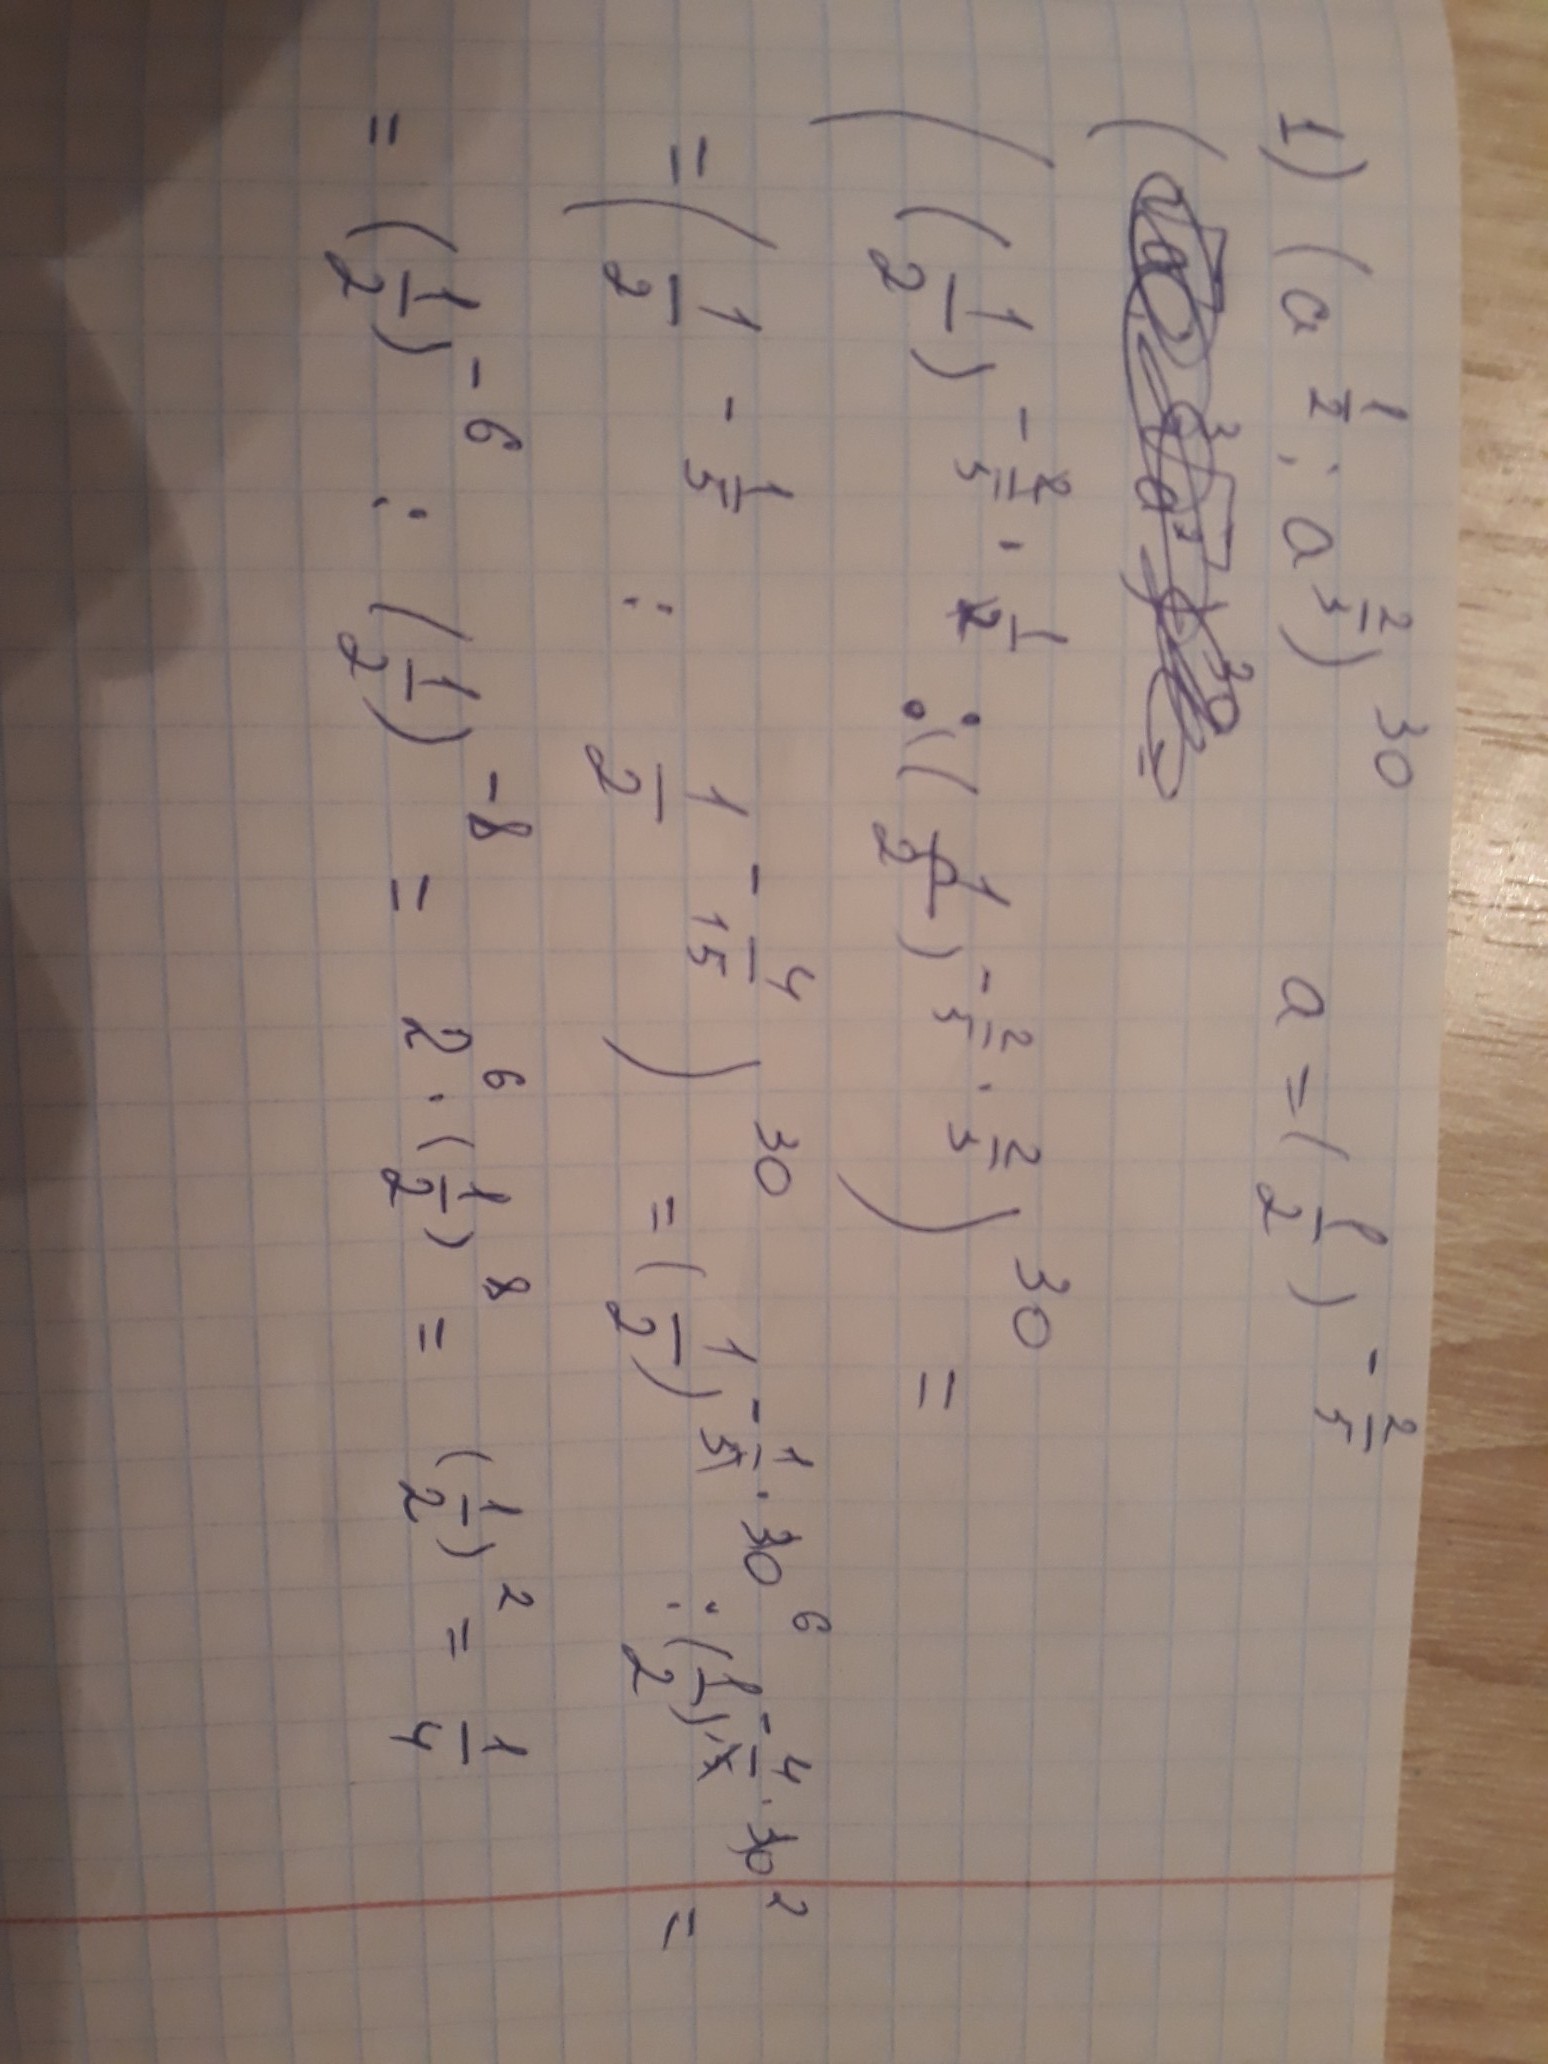 1) (a^{\frac{1}{2}} : a^{\frac{2}{3}})^{30} a = (\frac{1}{2})^{-\frac{2}{5}}
((\frac{1}{2})^{-\frac{2}{5} \cdot \frac{1}{2}} : ((\frac{1}{2})^{-\frac{2}{5} \cdot \frac{2}{3}})^{30} =
= (\frac{1}{2}^{-\frac{1}{5}} : \frac{1}{2}^{-\frac{4}{15}})^{30} = (\frac{1}{2})^{-\frac{1}{5} \cdot 30^{6}} : (\frac{1}{2})^{-\frac{4}{15} \cdot 30^{2}} =
= (\frac{1}{2})^{-6} : (\frac{1}{2})^{-8} = 2^{6} \cdot (\frac{1}{2})^{8} = (\frac{1}{2})^{2} = \frac{1}{4}